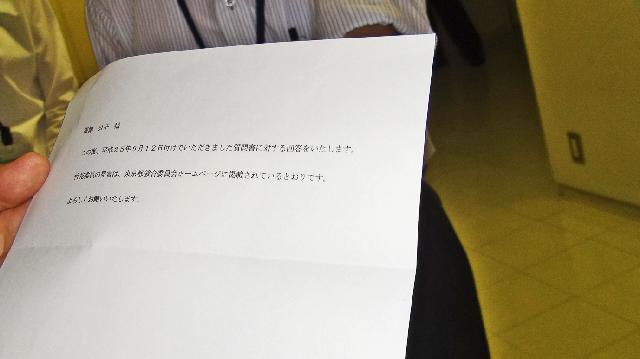 様
この度、平成25年9月12日付けでいただきました質問書に対する回答をいたします。
教育委員の見解は、東京都教育委員会ホームページに掲載されているとおりです。
よろしくお願いいたします。